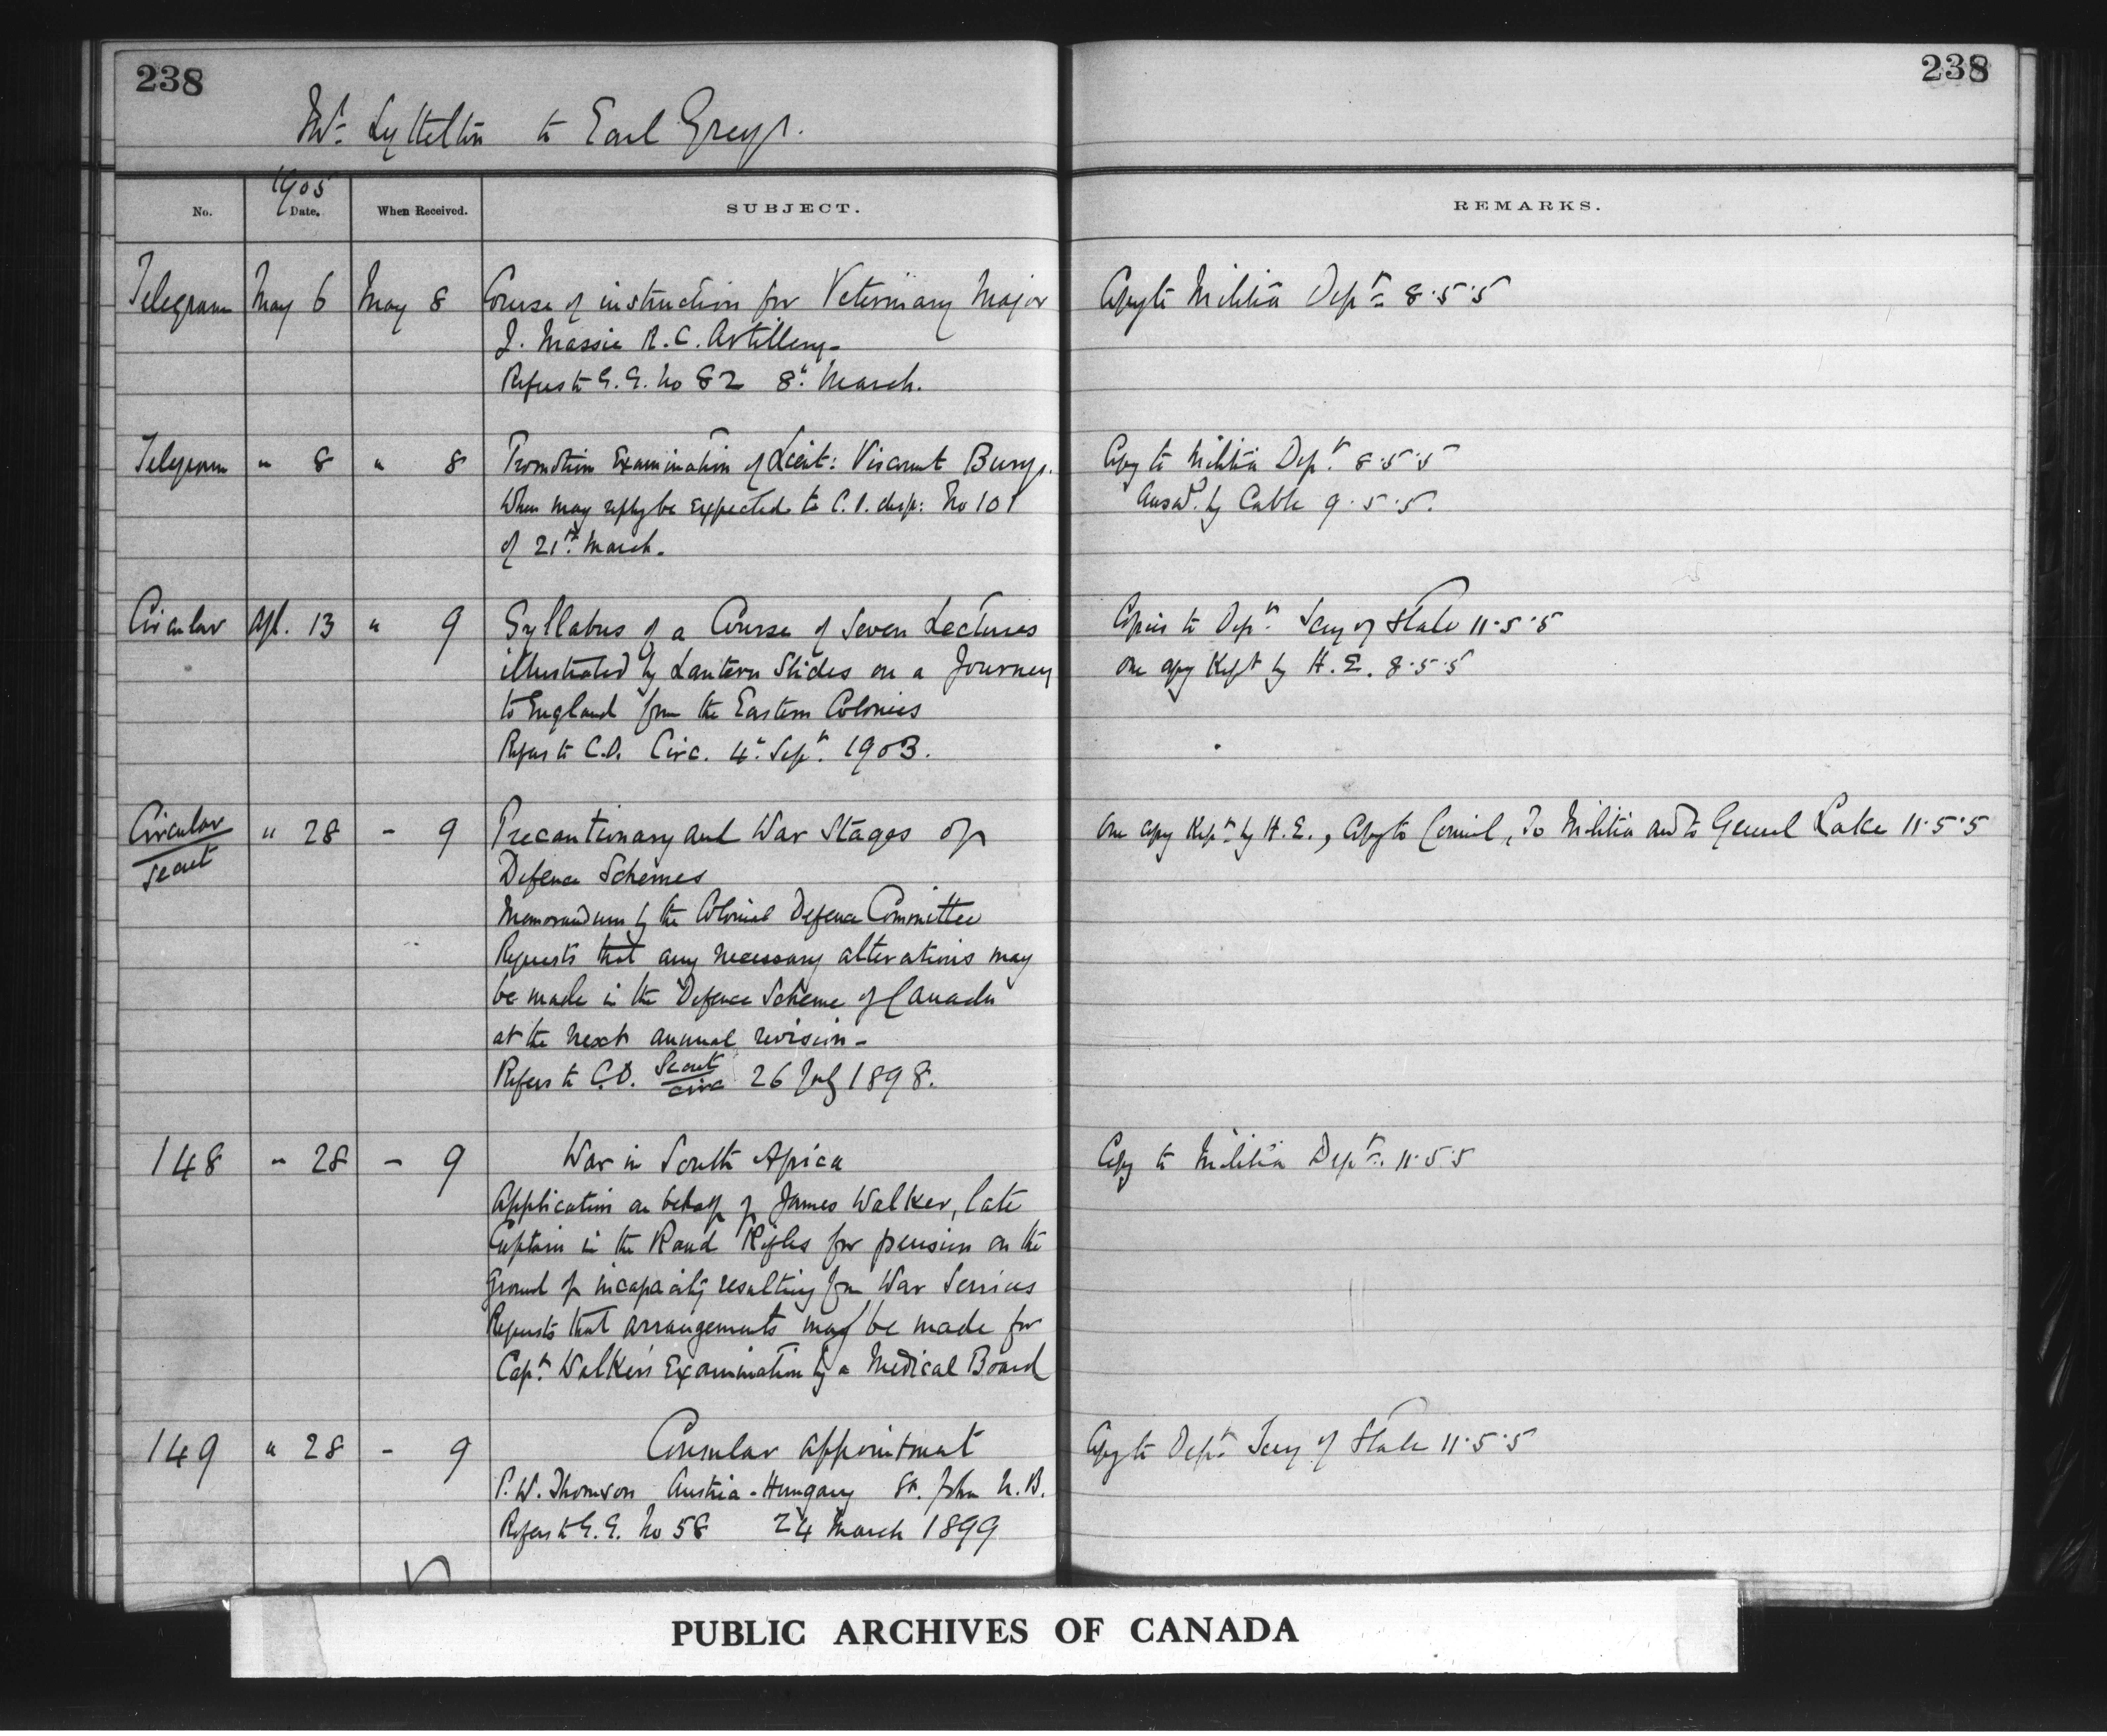 238
238
Mr. Lyttelton to Earl Grey.
1905
No. Date. When Received. SUBJECT. REMARKS.
Telegram May 6 May 8 Course of instruction for Veterinary Major Copy to Militia Dept. 8.5.5
J. Massie R.C. Artillery-
Refers to G.G. No 82 8th March.
Telegram " 8 " 8 Promotion Examination of Lieut: Viscount Bury. Copy to Militia Dept. 8.5.5
When may reply be expected to C.O. desp: No 101 Answd. by Cable 9.5.5.
of 21st March.
Circular Apl. 13 " 9 Syllabus of a Course of Seven Lectures Copies to Dept. Secy of State 11.5.5
illustrated by Lantern Slides on a Journey one copy kept by H.E. 8.5.5
to England from the Eastern Colonies
Refers to C.O. Circ. 4th Sept. 1903.
Circular " 28 - 9 Precautionary and War Stages of one copy kept by H.E., Copy to Council, To Militia and to General Lake 11.5.5
Secret Defence Schemes
Memorandum by the Colonial Defence Committee
Requests that any necessary alterations may
be made in the Defence Scheme of Canada
at the next annual revision-
Refers to C.O. Secret Circ 26 July 1898.
148 " 28 - 9 War in South Africa Copy to Militia Dept. 11.5.5
Application on behalf of James Walker, late
Captain in the Rand Rifles for pension on the
Ground of incapacity resulting from War Services
Requests that arrangements may be made for
Capt. Walker's Examination by a Medical Board
149 " 28 - 9 Consular appointment Copy to Dept. Secy of State 11.5.5
P.W. Thomson Austria-Hungary St. John N.B.
Refers to G.G. No 58 24 March 1899
PUBLIC ARCHIVES OF CANADA